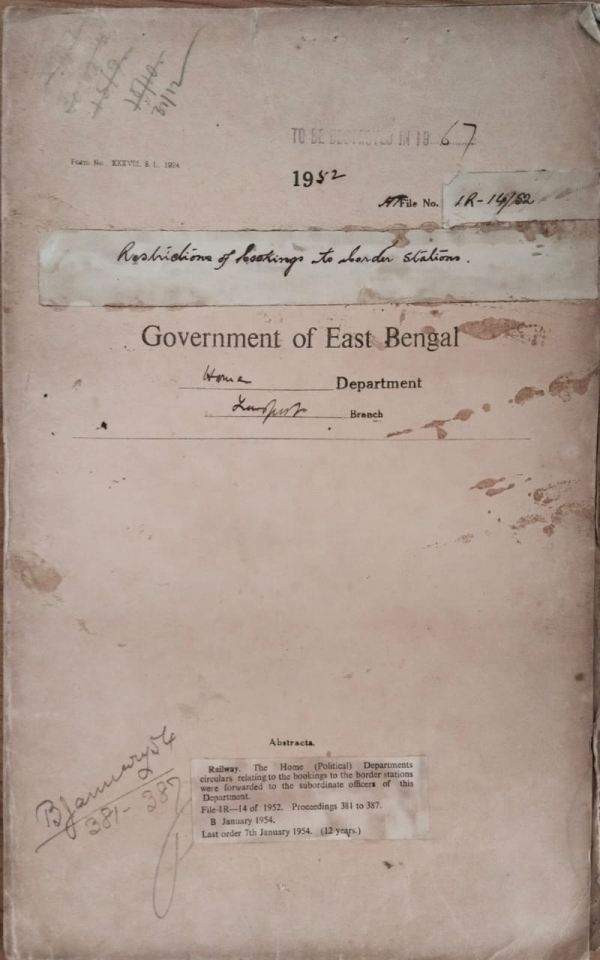 31/12
TO BE DESTROYED IN 1967
Form No. XXXVII, S. L. 1924
1952
File No. 1R-14/52
Restrictions of bookings to border stations.
Government of East Bengal
Home Department
Branch
Abstracts.
Railway. The Home (Political) Departments
circulars relating to the bookings to the border stations
were forwarded to the subordinate officers of this
Department.
File 1R—14 of 1952. Proceedings 381 to 387.
B January 1954.
Last order 7th January 1954. (12 years.)
B January 54
381 - 387